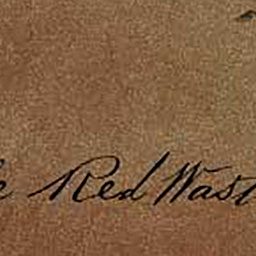 e Red Wast